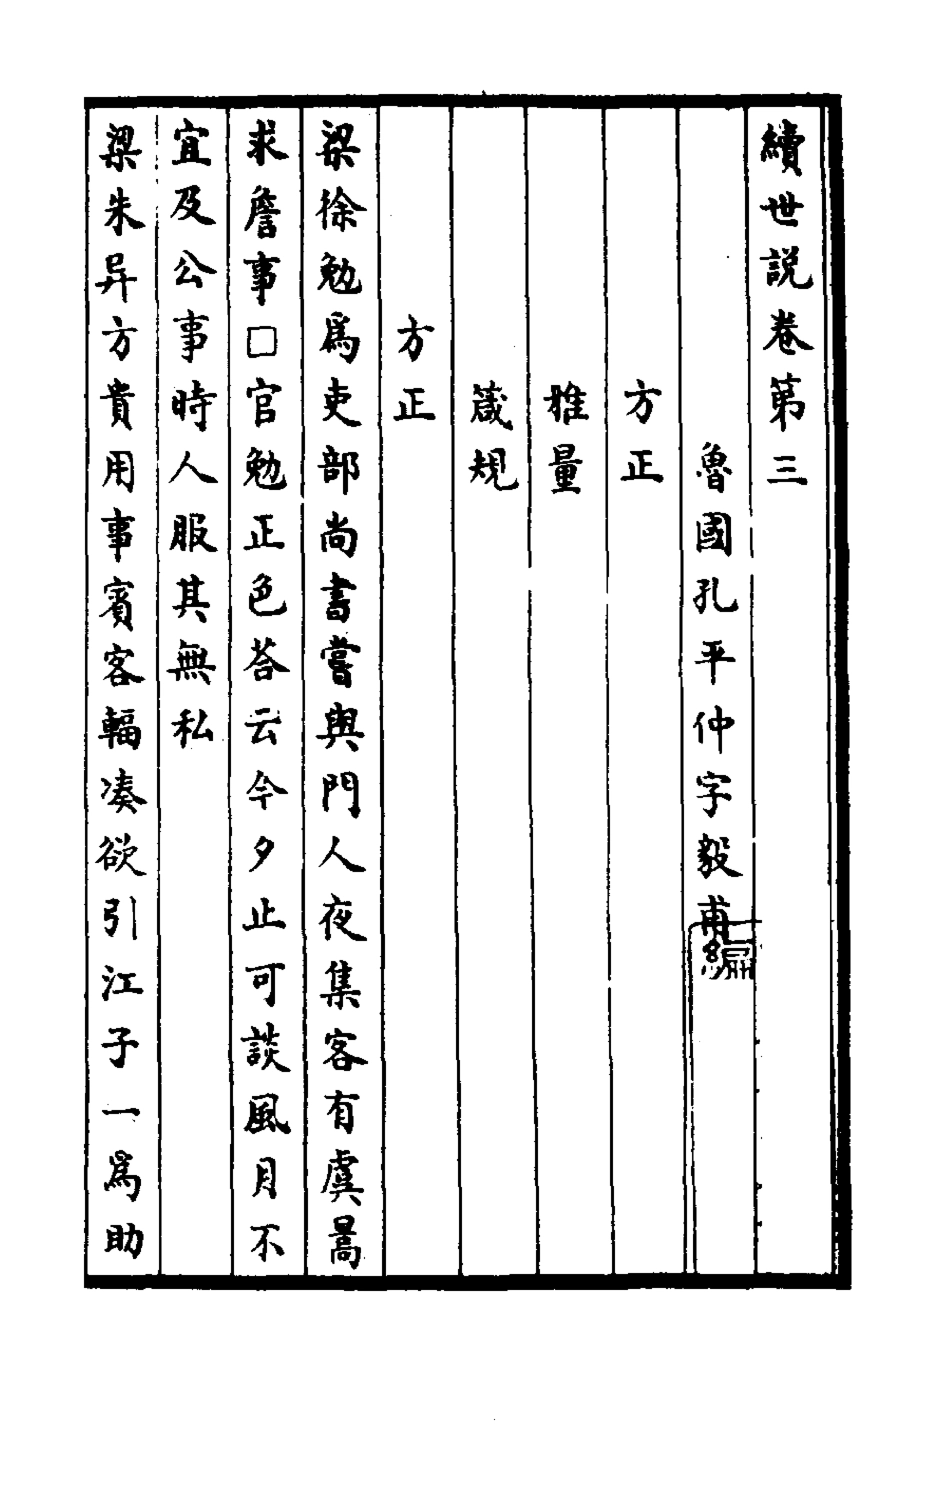 續世説卷第三
魯國孔平仲字毅甫編
方正
雅量
箴規
方正
梁徐勉爲吏部尚書嘗與門人夜集客有虞暠
求詹事□官勉正色荅云今夕止可談風月不
宜及公事時人服其無私
梁朱异方貴用事賓客輻湊欲引江子一爲助